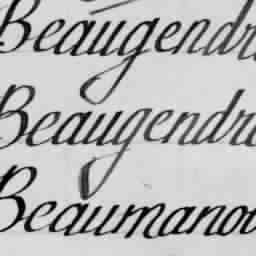 Beaugendr
Beaugendr
Beaumano